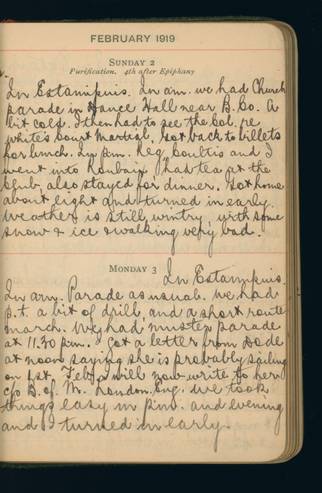 FEBRUARY 1919
SUNDAY 2
Purification. 4th after Epiphany
In Estampuis. In am. we had Church
parade in Dance Hall near B. Co. A
bit cold. I then had to see the Col. re
White's Court Martial, got back to billets
for lunch. In pm. Reg Coultis and I
went into Roubaix had tea at the
Club, also stayed for dinner. Got home
about eight and turned in early.
Weather is still wintry, with some
snow & ice & walking very bad.
MONDAY 3
In Estampuis.
In am. Parade as usual. We had
P.T. a bit of drill, and a short route
march. We had muster parade
at 11.30 pm. I got a letter from
at noon saying she is probably sailing
on 1st. Feby, will now write to her
c/o B. of M. London. Eng. We took
things easy in p.m. and evening
and I turned in early.